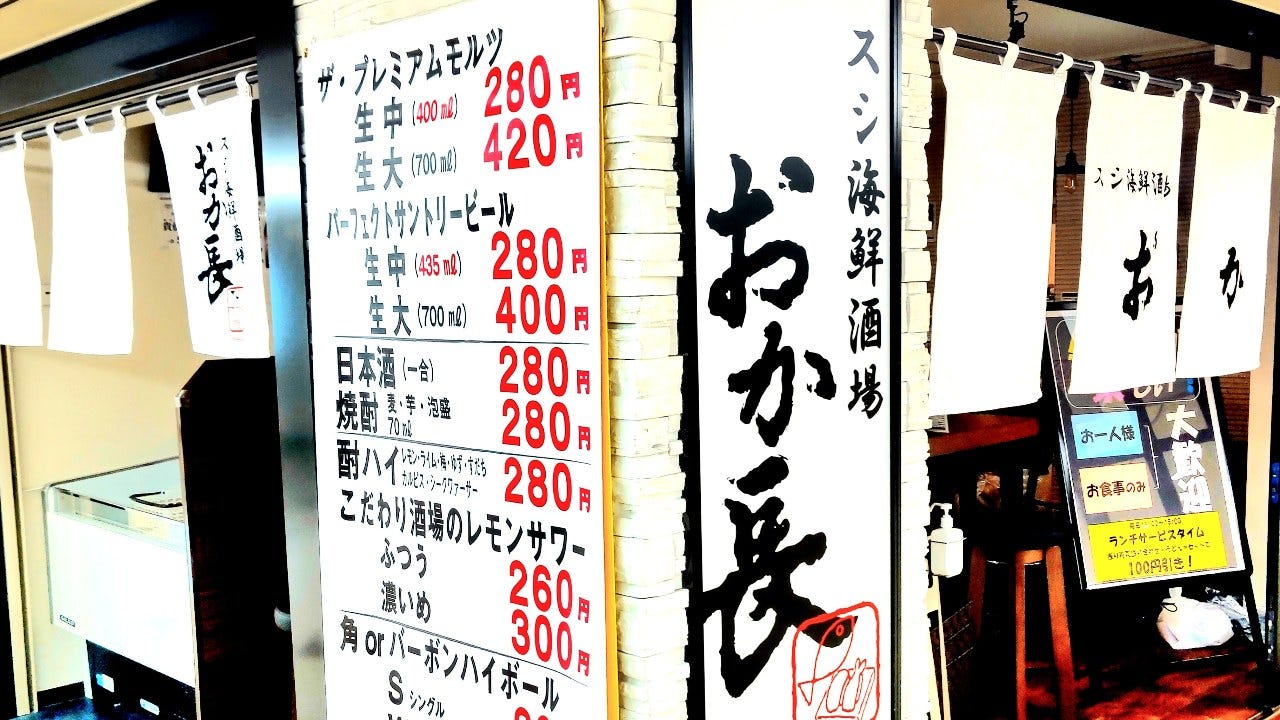 スシ海鮮酒場
おか長
ザ・プレミアムモルツ
生中(400㎖) 280円
生大(700㎖) 420円
パーフェクトサントリービール
生中(435㎖) 280円
生大(700㎖) 400円
日本酒(一合) 280円
焼酎 麦・芋・泡盛 70㎖ 280円
酎ハイ レモン・ライム・梅・ゆず・すだち 280円
カルピス・シークヮーサー
こだわり酒場のレモンサワー
ふつう 260円
濃いめ 300円
角 or バーボンハイボール
S シングル
スシ海鮮酒場
おか長
スシ海鮮酒
おか
大歓迎
お一人様
お食事のみ
ランチサービスタイム
100円引き!